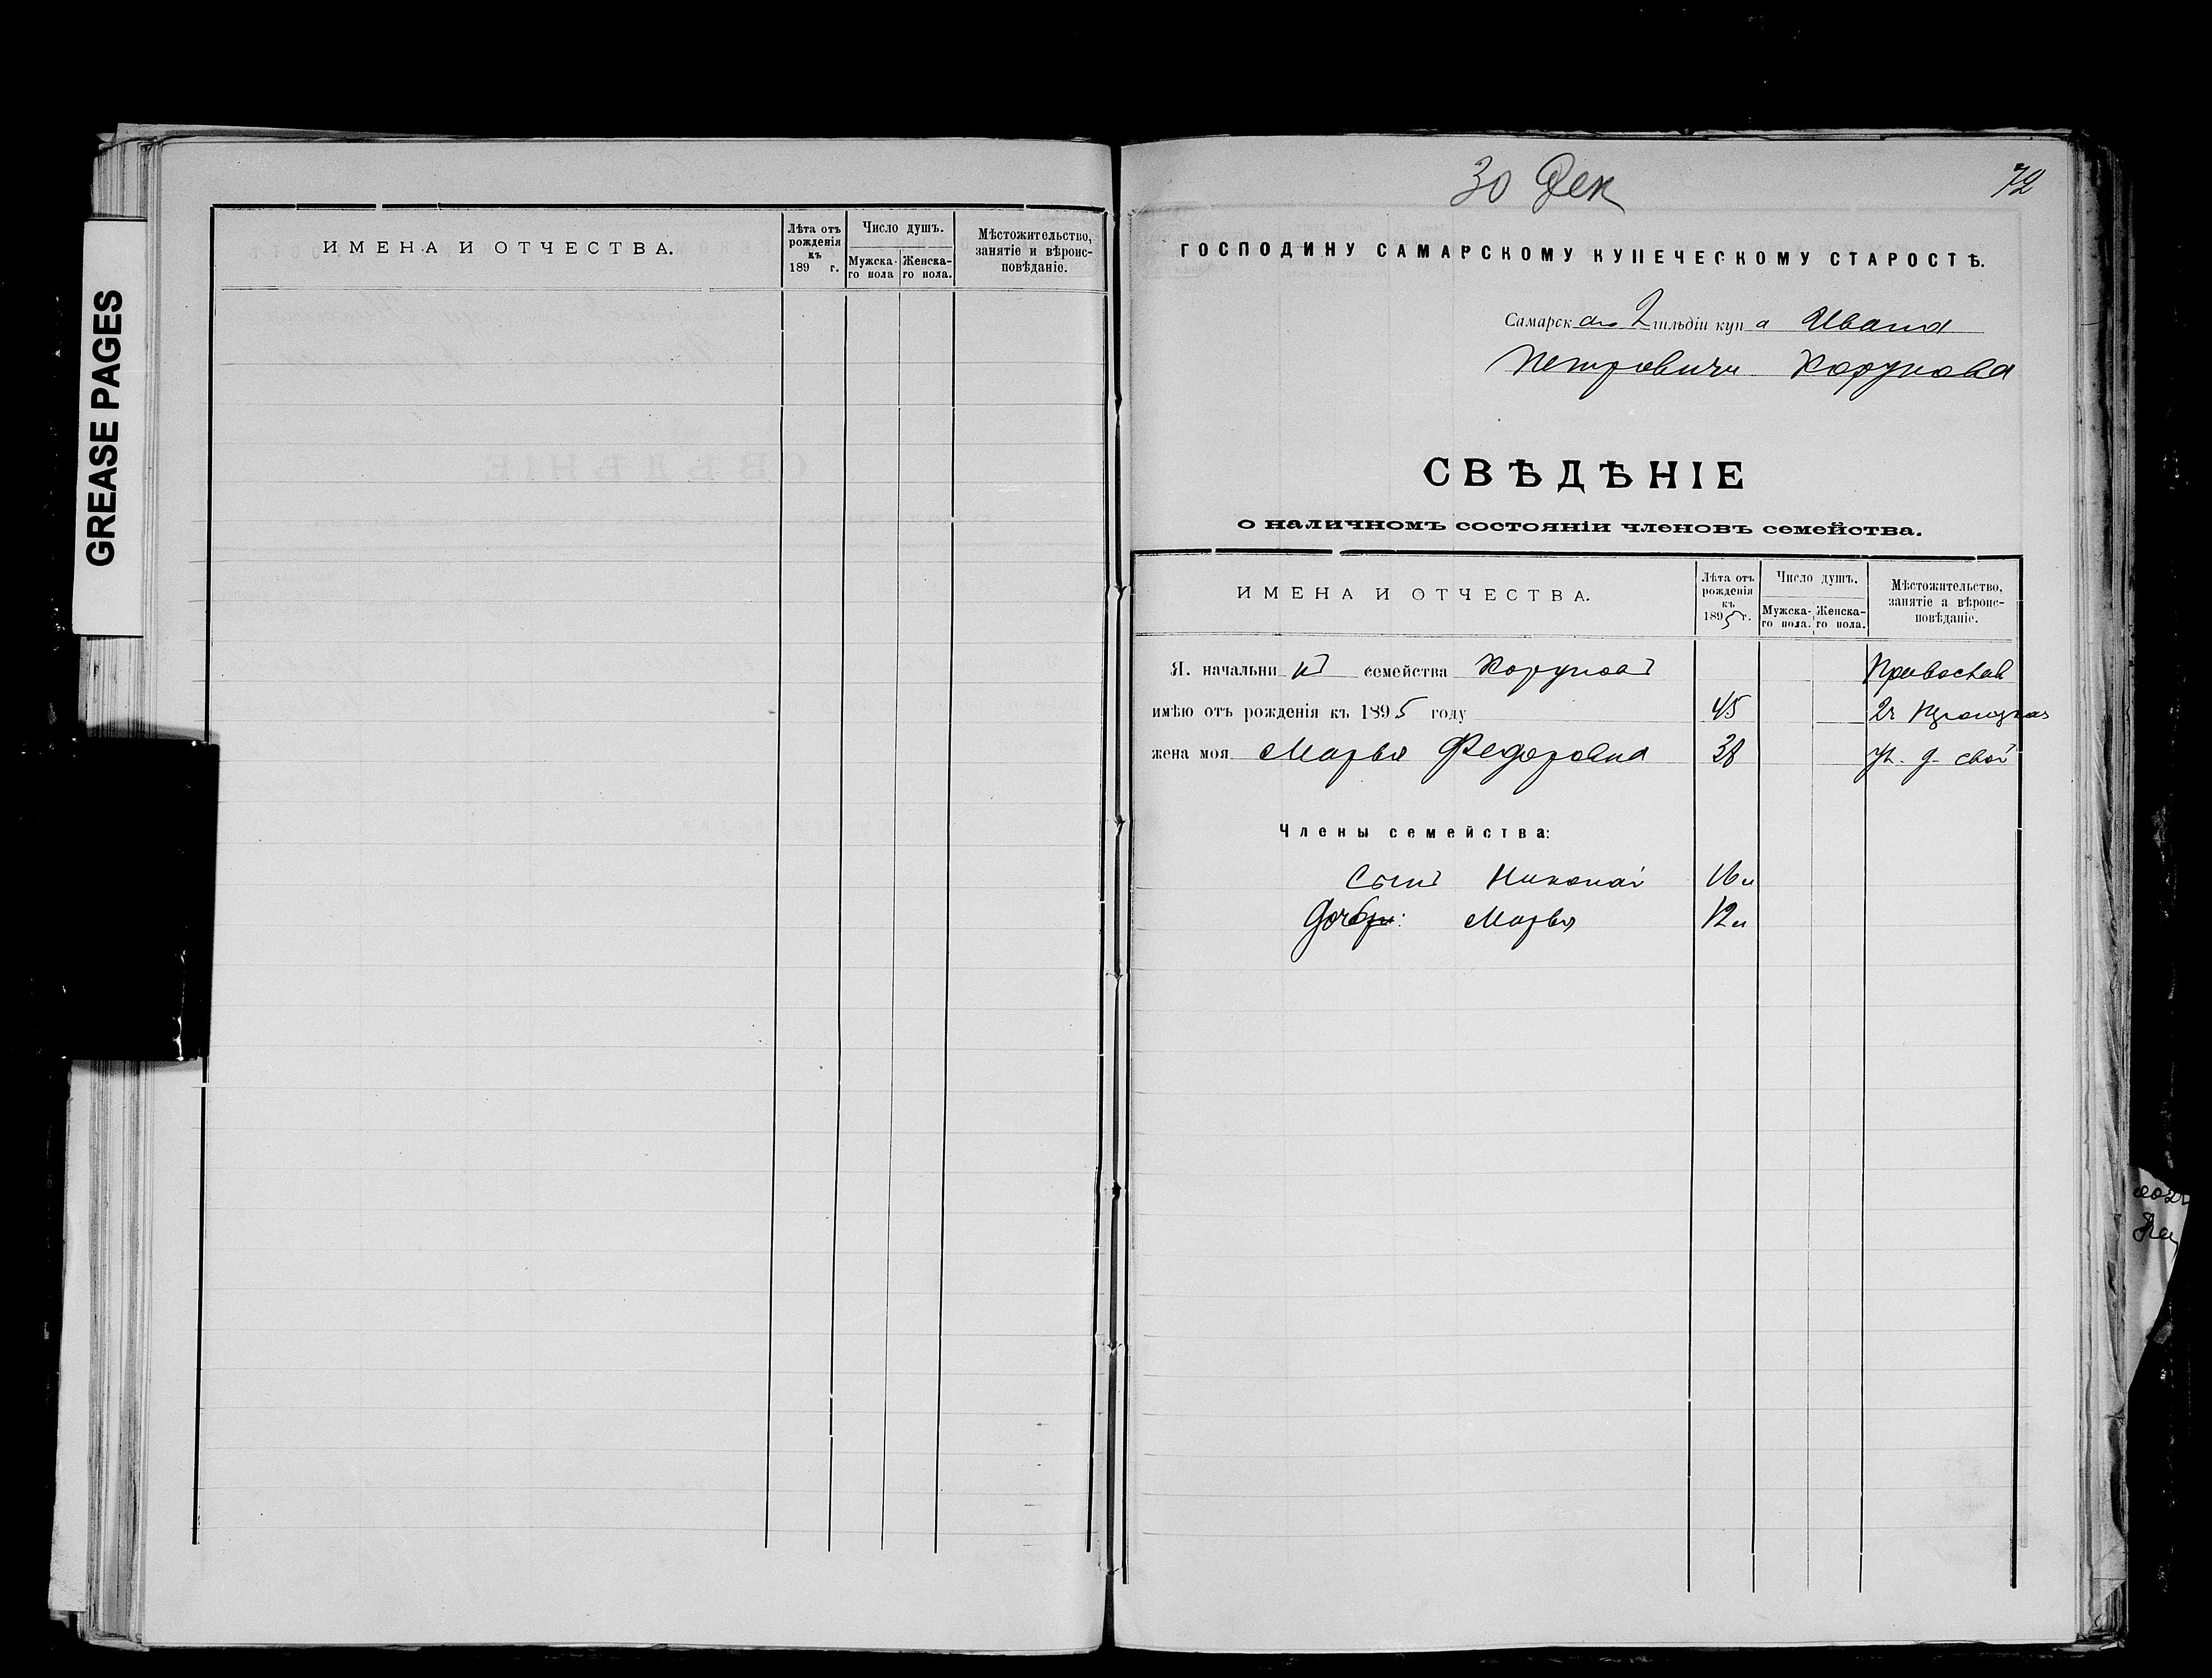 GREASE PAGES
ИМЕНА И ОТЧЕСТВА.
Лѣта отъ рожденія къ 189 г.
Число душъ.
Мужска-го пола
Женска-го пола.
Мѣстожительство, занятіе и вѣроис-повѣданіе.
30 Дек
72
ГОСПОДИНУ САМАРСКОМУ КУПЕЧЕСКОМУ СТАРОСТѢ.
Самарскаго 2 гильдіи купа Ивана
Петровича Корунова
СВѢДѢНІЕ
о наличномъ состояніи членовъ семейства.
ИМЕНА И ОТЧЕСТВА.
Лѣта отъ рожденія къ 1895 г.
Число душъ.
Мужска-го пола.
Женска-го пола.
Мѣстожительство, занятіе а вѣроис-повѣданіе.
Я. начальникъ семейства Коруновъ Православ
имѣю отъ рожденія къ 1895 году 45 2ч
жена моя Марья Федоровна 38 д. свой
Члены семейства:
Сынъ Николай 16 л
Дочь: Марья 12 л